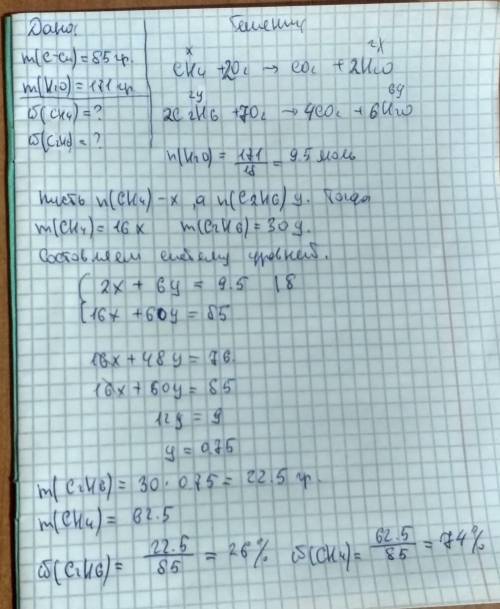 Дано:
Решение
m(C-C4) = 85 гр.
m(H2O) = 171 гр.
ω(CH4) = ?
ω(C2H6) = ?
x 2x
CH4 + 2O2 → CO2 + 2H2O
2y 6y
2C2H6 + 7O2 → 4CO2 + 6H2O
n(H2O) = 171/18 = 9.5 моль
Пусть n(CH4) - x, а n(C2H6) y. Тогда
m(CH4) = 16x m(C2H6) = 30y.
Составляем систему уравнений.
2x + 6y = 9.5 | 8
16x + 60y = 85
16x + 48y = 76.
16x + 60y = 85
12y = 9
y = 0.75
m(C2H6) = 30 · 0.75 = 22.5 гр.
m(CH4) = 62.5
ω(C2H6) = 22.5/85 = 26% ω(CH4) = 62.5/85 = 74%